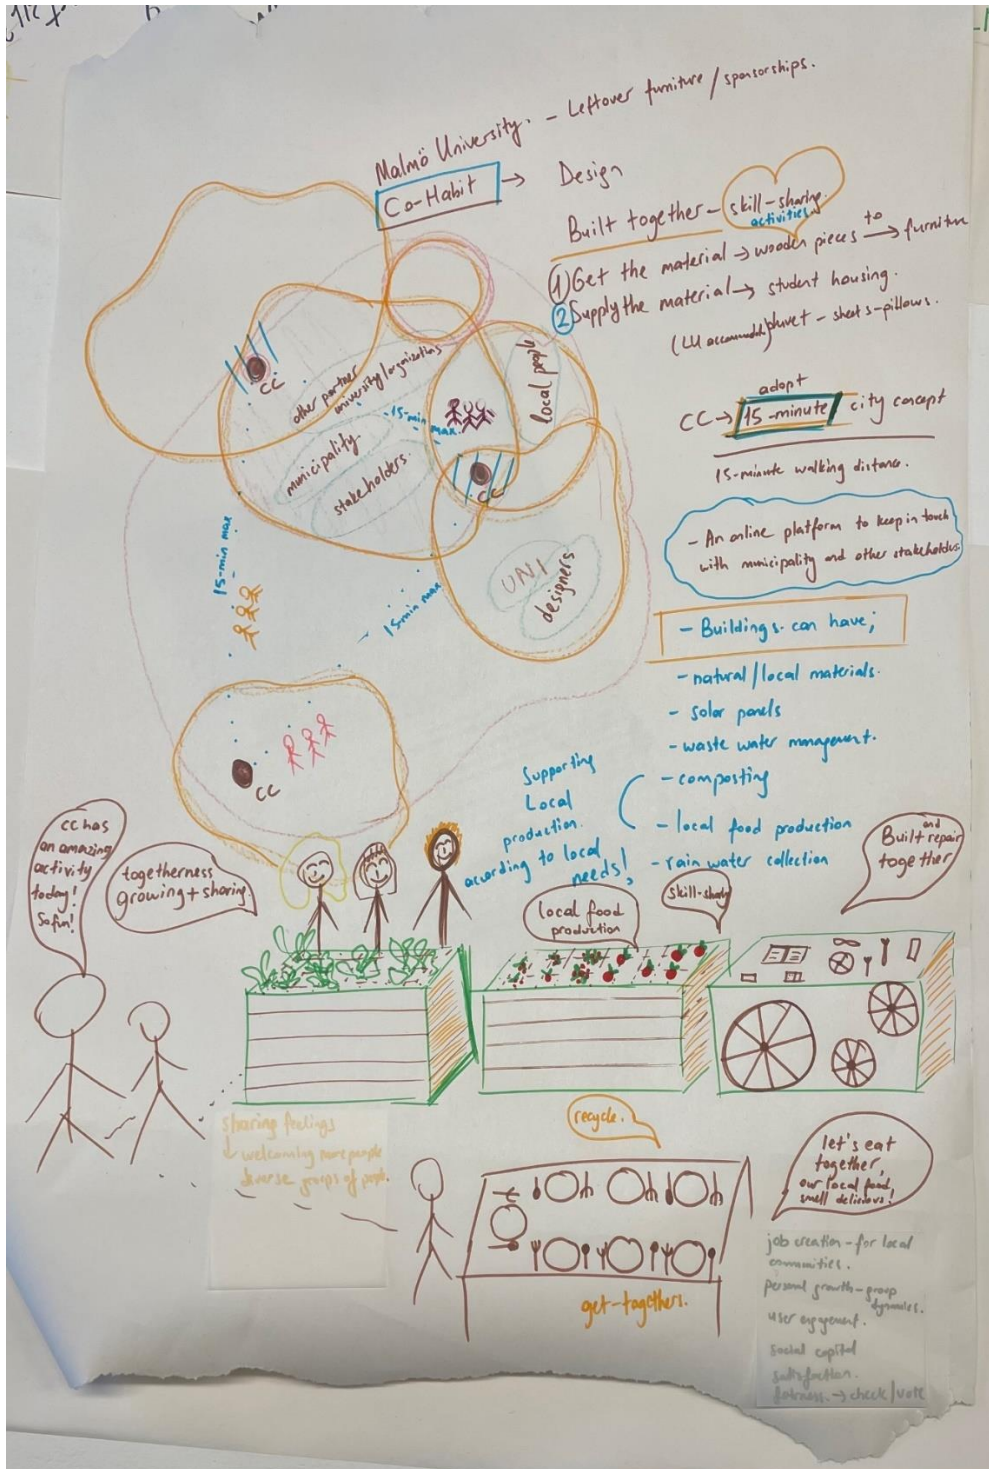 Malmö University. - Leftover furniture / sponsorships.
Co-Habit → Design
Built together - skill-sharing
activities
① Get the material → wooden pieces → to furniture
② Supply the material → student housing.
duvet - sheets - pillows.
adopt
CC → 15-minute city concept
15-minute walking distance.
- An online platform to keep in touch
with municipality and other stakeholders.
- Buildings can have;
- natural/local materials.
- solar panels
- waste water management.
- composting
- local food production
- rain water collection
Supporting
Local
production.
according to local
needs!
CC
other partner
university/organizations
municipality
stakeholders.
15-min max.
local people
CC
UNI
designers
15-min max
15-min max
CC
CC has
an amazing
activity
today!
So fun!
togetherness
growing + sharing
local food
production
skill-sharing
Built and repair
together
sharing feelings
↓ welcoming more people
diverse groups of people.
recycle.
get-togethers.
let's eat
together,
our local food
smell delicious!
job creation - for local
communities.
personal growth - group
dynamics.
user engagement.
social capital
satisfaction.
fairness. → check/vote